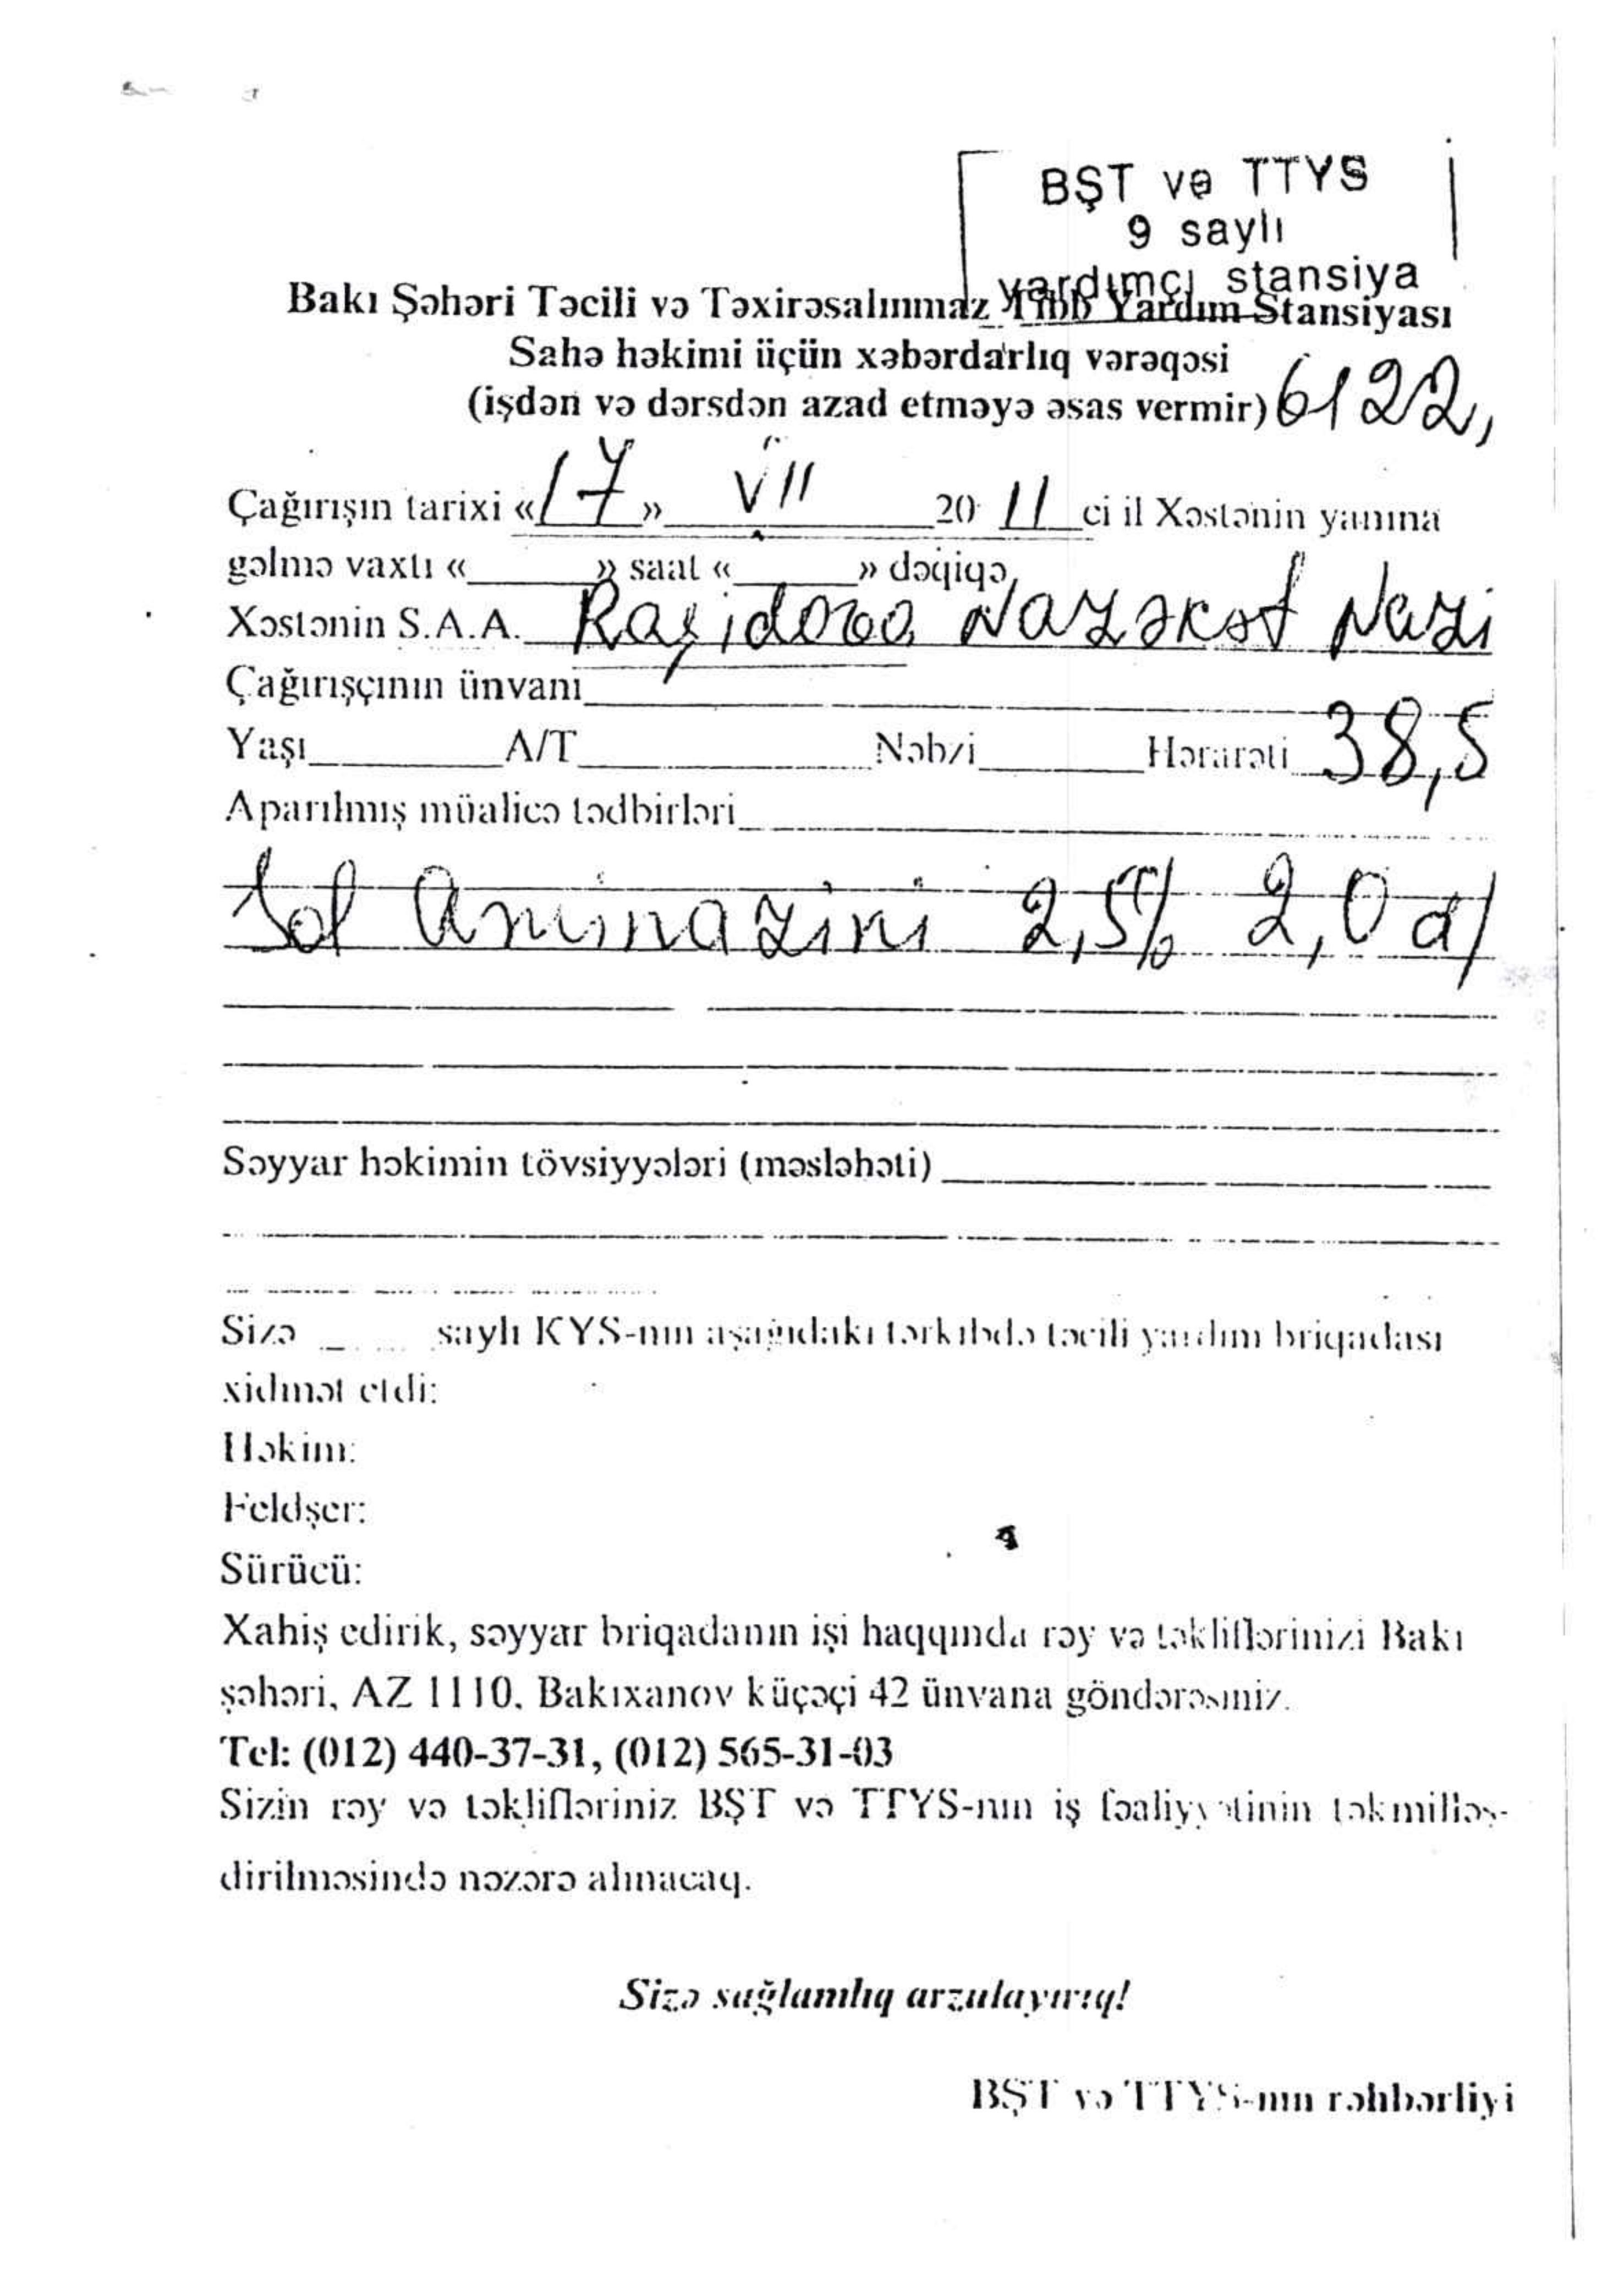 BŞT və TTYS
9 saylı
yardımçı stansiya
Bakı Şəhəri Təcili və Təxirəsalınmaz Tibb Yardım Stansiyası
Sahə həkimi üçün xəbərdarlıq vərəqəsi
(işdən və dərsdən azad etməyə əsas vermir) 6122,
Çağırışın tarixi «17» VII 2011 ci il Xəstənin yanına
gəlmə vaxtı «______» saat «______» dəqiqə,
Xəstənin S.A.A. Raşidova Nazəkət Nazi
Çağırışçının ünvanı
Yaşı______A/T______Nəbzi______Hərarəti 38,5
Aparılmış müalicə tədbirləri
Sol Aminazini 2,5% 2,0 a/
Səyyar həkimin tövsiyyələri (məsləhəti)
Sizə ______ saylı KYS-nın aşağıdakı tərkibdə təcili yardım briqadası
xidmət etdi:
Həkim:
Feldşer:
Sürücü:
Xahiş edirik, səyyar briqadanın işi haqqında rəy və təkliflərinizi Bakı
şəhəri, AZ 1110, Bakıxanov küçəçi 42 ünvana göndərəsiniz.
Tel: (012) 440-37-31, (012) 565-31-03
Sizin rəy və təklifləriniz BŞT və TTYS-nın iş fəaliyyətinin təkmilləş-
dirilməsində nəzərə alınacaq.
Sizə sağlamlıq arzulayırıq!
BŞT və TTYS-nın rəhbərliyi